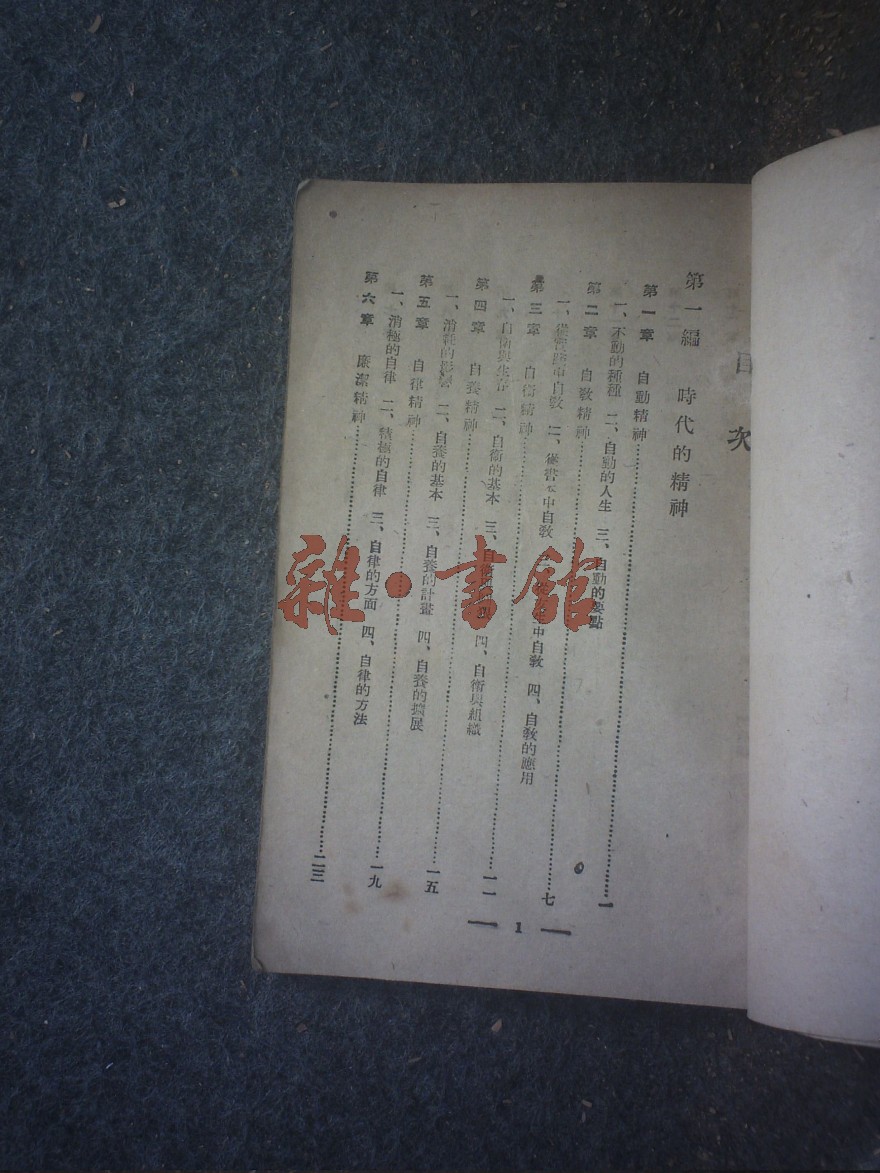 目次
第一編　時代的精神
第一章　自動精神……一
一、不動的種種　二、自動的人生　三、自動的要點
第二章　自敎精神……七
一、從　中自敎　二、從書　中自敎　中自敎　四、自敎的應用
第三章　自衛精神……一一
一、自衛與生存　二、自衛的基本　三、自衛　四、自衛與組織
第四章　自養精神……一五
一、消耗的　二、自養的基本　三、自養的計畫　四、自養的擴展
第五章　自律精神……一九
一、消極的自律　二、積極的自律　三、自律的方面　四、自律的方法
第六章　廉潔精神……二三
1
雜·書館